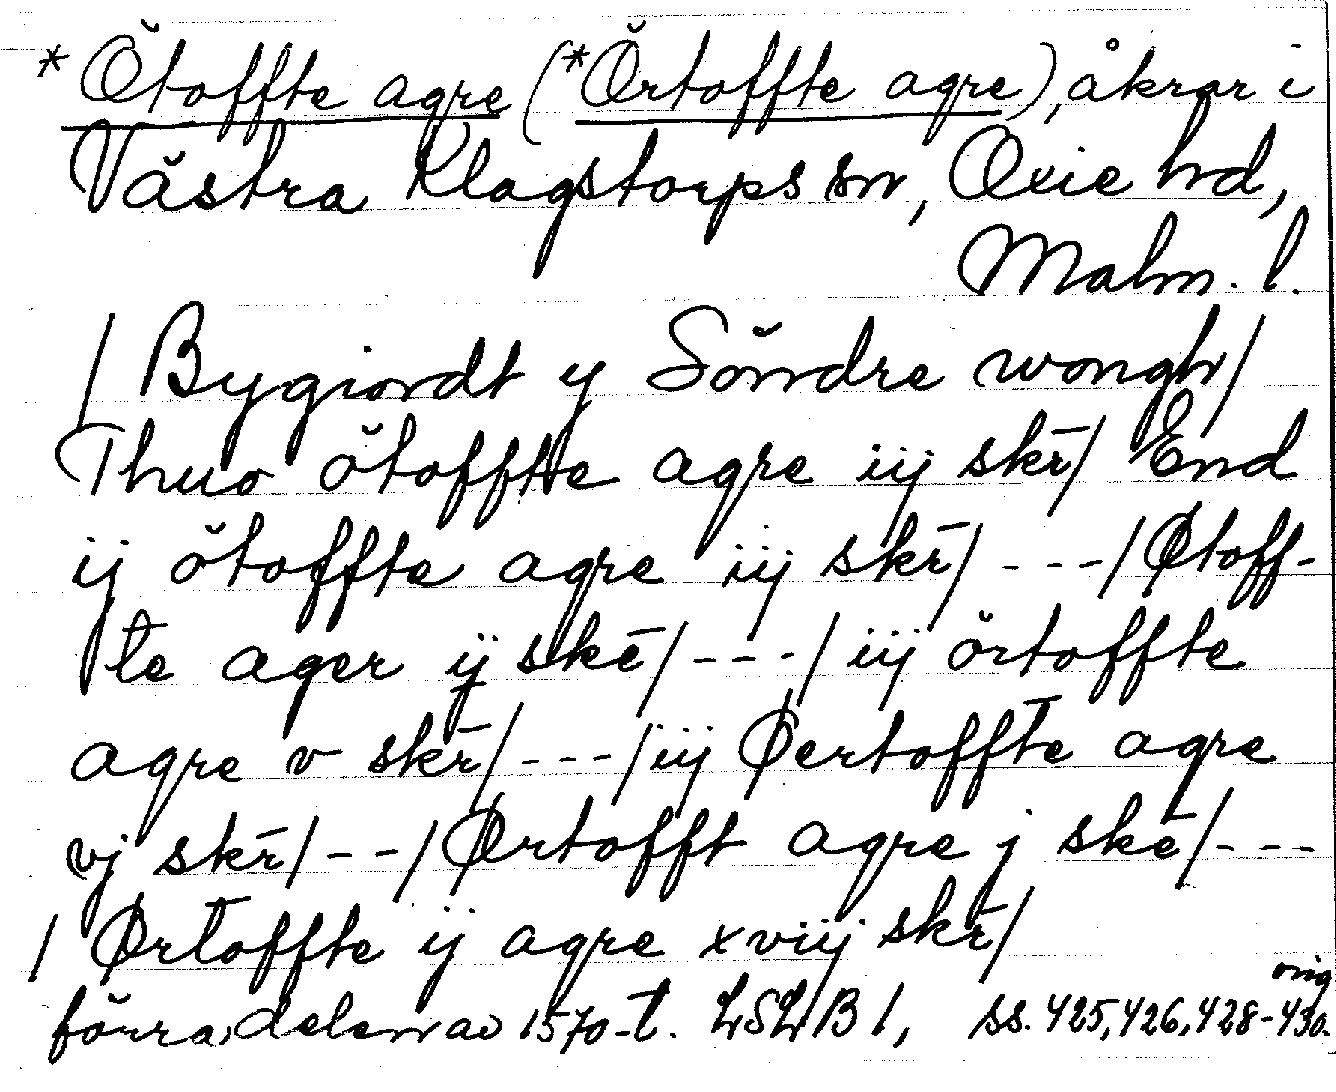 * Ötoffte agre (*Örtoffte agre), åkrar i
Västra Klagstorps sn, Oxie hd,
Malm. l.
/ Bygiordt y Söndre wongh/
Thuo ötoffte agre iij skr̄/ End
ij ötoffte agre iij skr̄/ ---/ Øtoff-
te ager ij skē/ ---/ iij örtoffte
agre v skr̄/ ---/ iij Øertoffte agre
vj skr̄/ --/ Ørtofft agre j skē/ ---
/ Ørtoffte ij agre xviij skr̄/
förra delen av 1570-t. LSLB 1, ss. 425, 426, 428-430.
orig